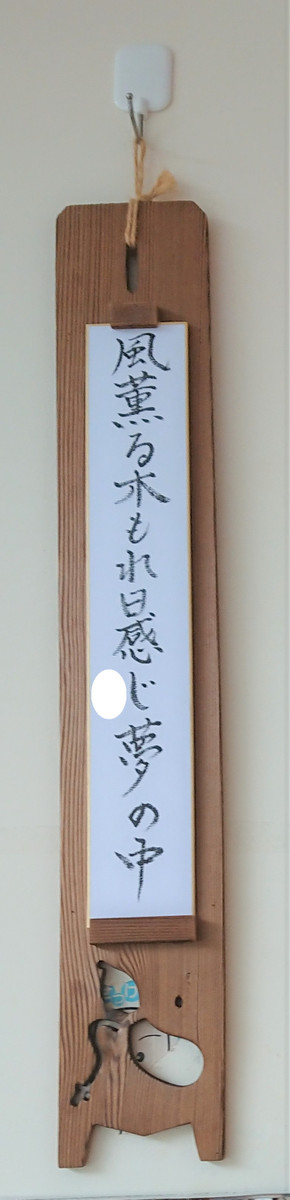 風薫る木もれ日感じ夢の中